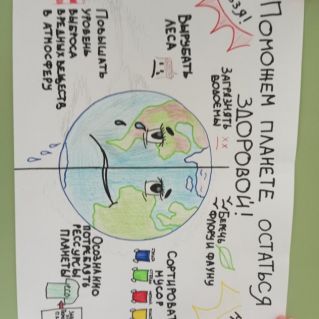 Поможем планете остаться
здоровой!
Загрязнять
водоёмы
Вырубать
леса
Повышать
уровень
выброса
вредных веществ
в атмосферу
Беречь
флору и фауну
Сортировать
мусор
Осознанно
потреблять
рессурсы
планеты